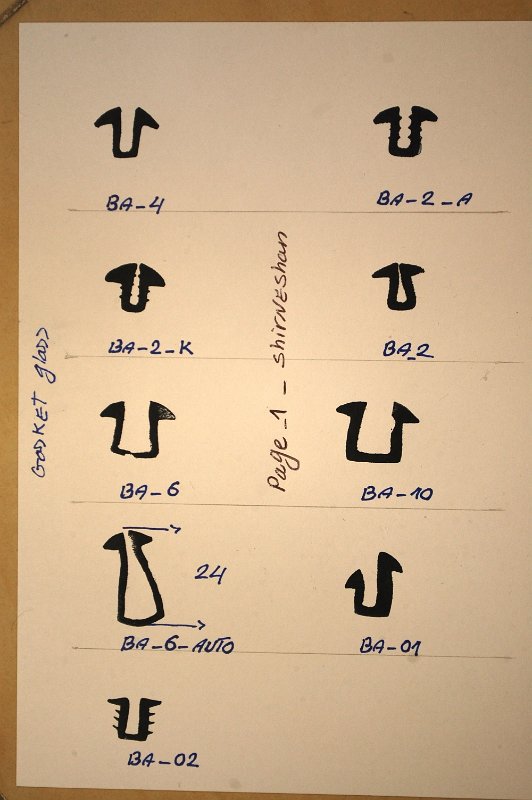 BA-4
BA-2-A
BA-2-K
BA_2
BA-6
BA-10
24
BA-6-AUTO
BA-01
BA-02
GASKET glass
Page-1-ShirNEShan